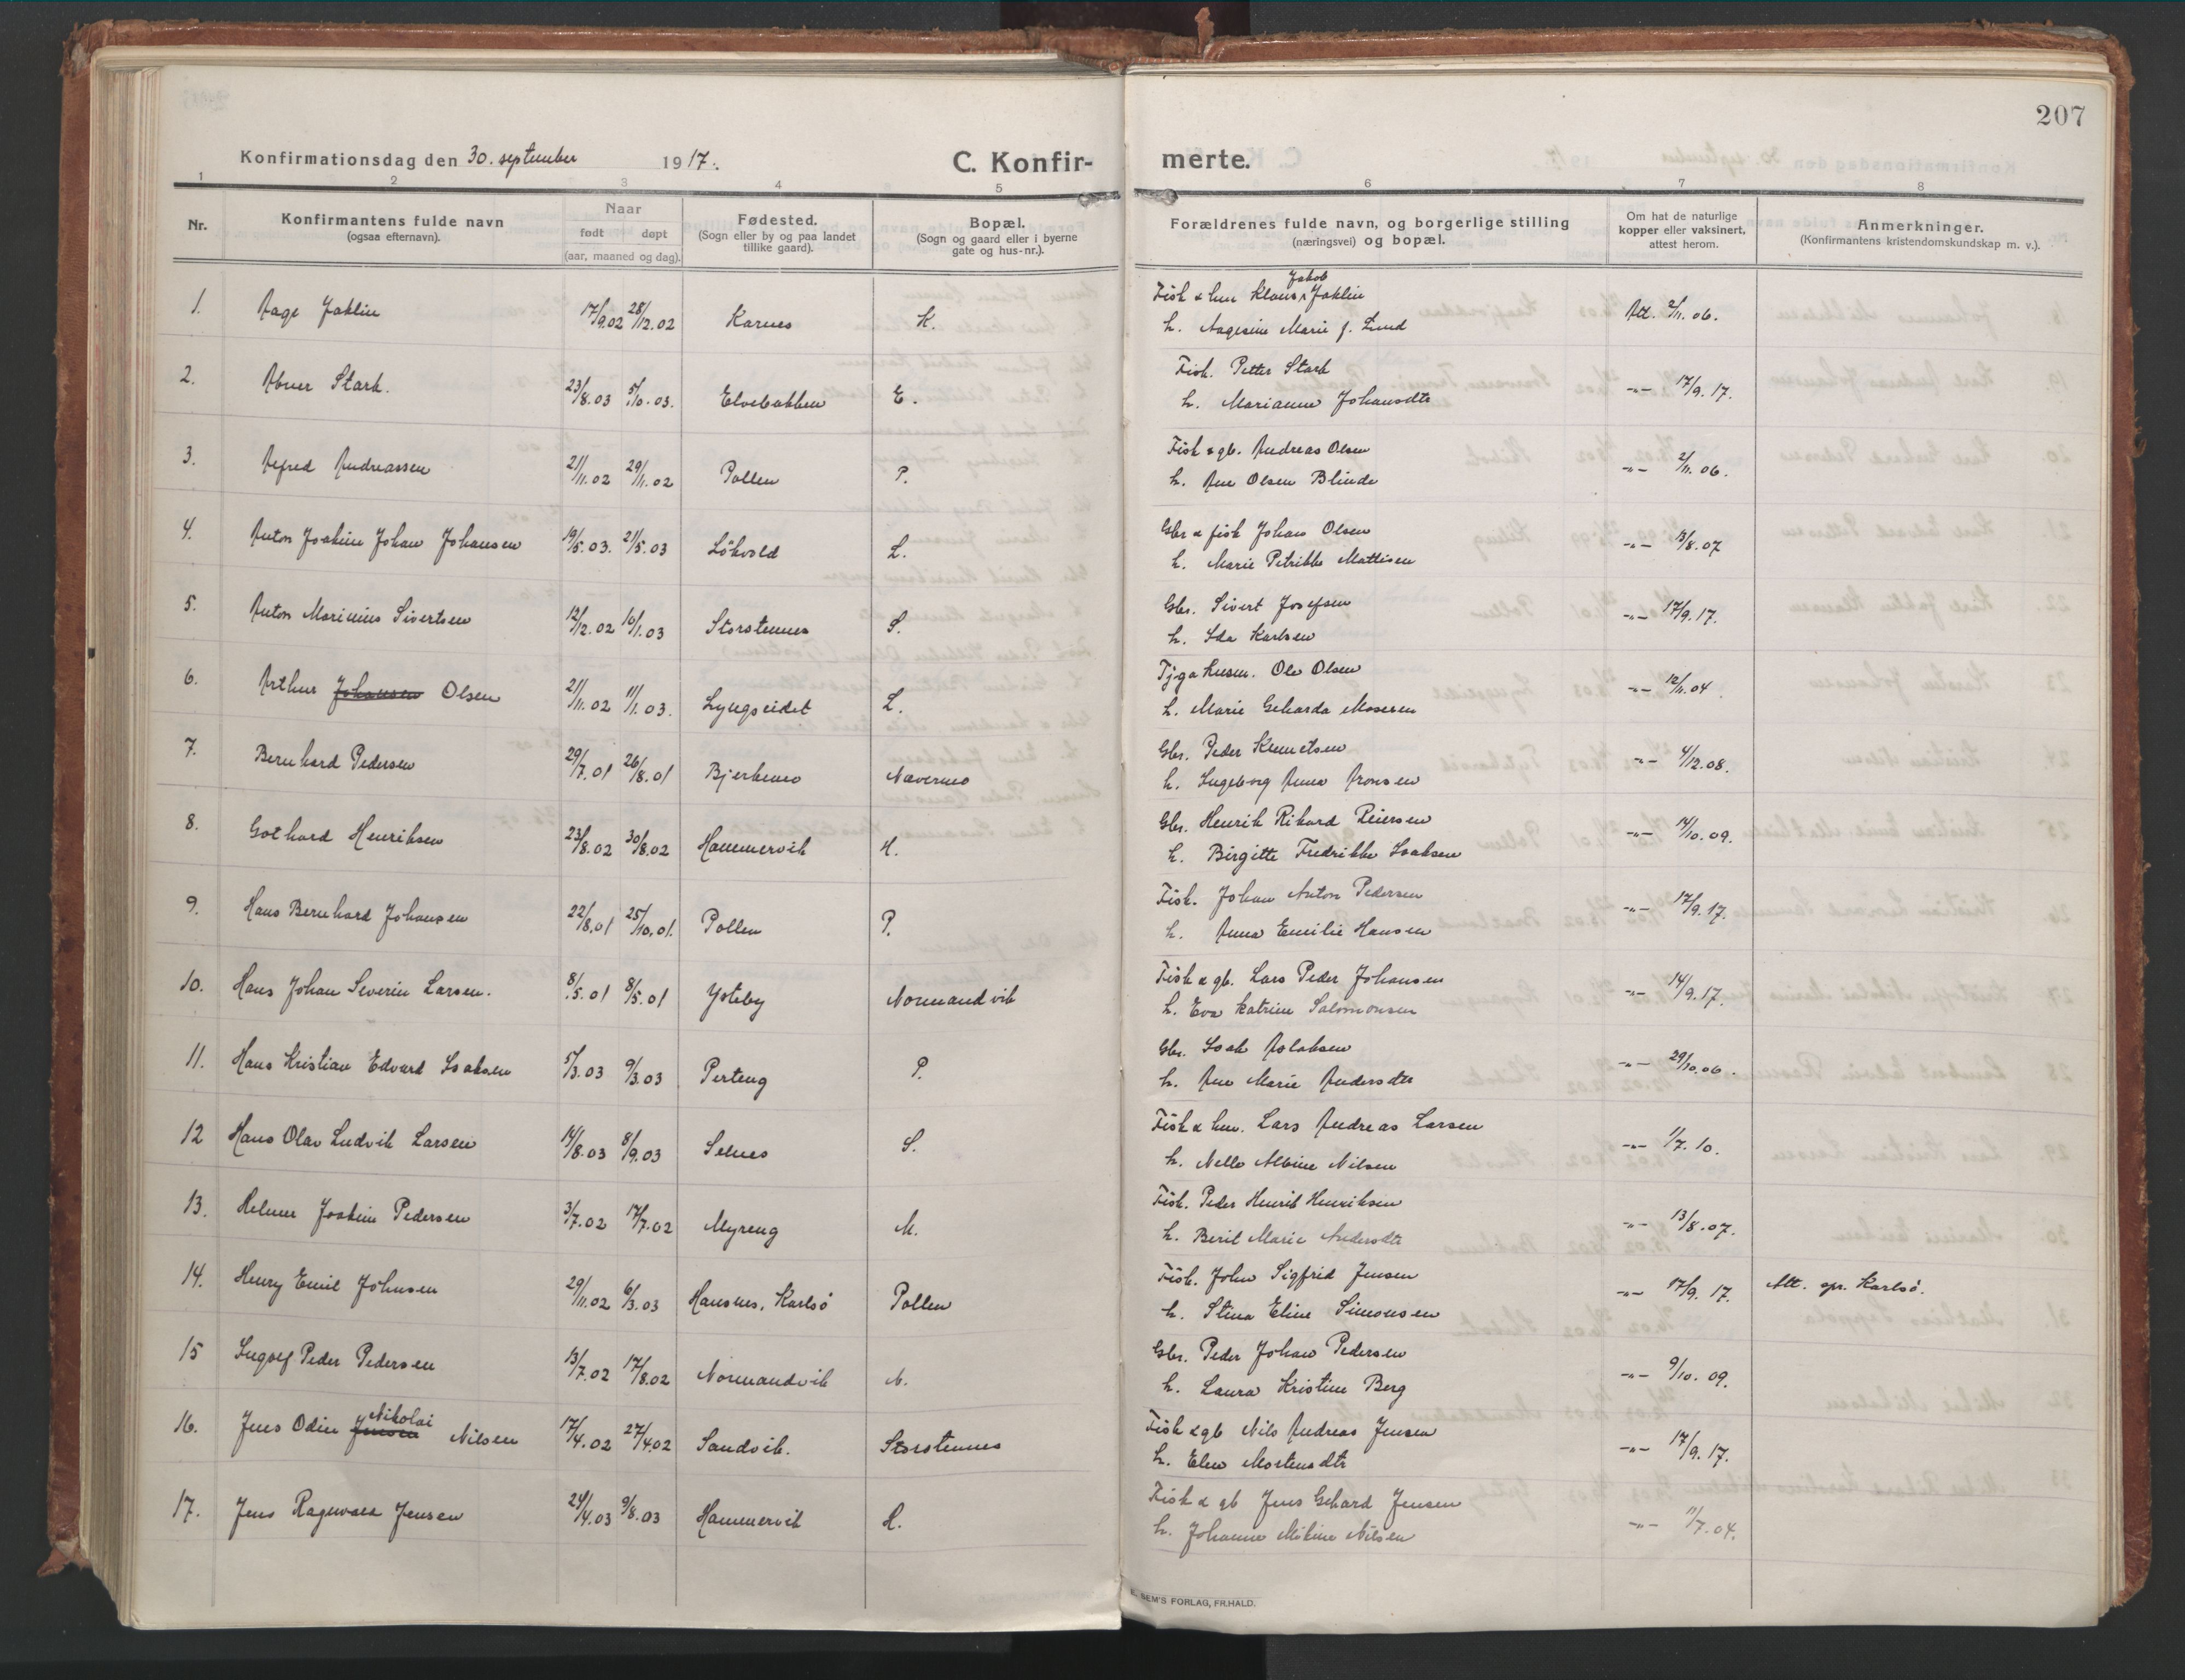 207
Konfirmationsdag den 30. september 1917. C. Konfir- merte.
1 2 3 4 5 6 7 8
Nr. Konfirmantens fulde navn (ogsaa efternavn). Naar født døpt (aar, maaned og dag). Fødested. (Sogn eller by og paa landet tillike gaard). Bopæl. (Sogn og gaard eller i byerne gate og hus-nr.). Forældrenes fulde navn, og borgerlige stilling (næringsvei) og bopæl. Om hat de naturlige kopper eller vaksinert, attest herom. Anmerkninger. (Konfirmantens kristendomskundskap m. v.).
1. Aage Jaklin 17/9.02 28/12.02 Karnes K. Fisk & hm Klaus Jakob Jaklin Att. 2/11.06.
h. Aagesine Marie f. Lund
2. Abner Stark. 23/8.03 5/10.03. Elvebakken E. Fisk. Petter Stark -"- 17/9.17.
h. Marianne Johansdtr
3. Alfred Andreassen 21/11.02 29/11.02 Pollen P. Fisk & gb. Andreas Olsen -"- 2/11.06.
h. Ane Olsen Blinde
4. Anton Joakim Johan Johansen 19/5.03. 21/5.03 Lökvold L. Gbr & fisk Johan Olsen -"- 13/8.07
h. Marie Petrikke Mattisen
5. Anton Marinius Sivertsen 12/12.02 10/1.03 Storstennes S. Gbr. Sivert Josefsen -"- 17/9.17.
h. Ida Karlsen
6. Arthur Johansen Olsen 21/11.02 11/1.03. Lyngseidet L. Ole Olsen -"- 12/11.04.
h. Marie Geharda Mosesen
7. Bernhard Pedersen 29/7.01 26/8.01 Bjerkemo Navernes Gbr. Peder Knuetsen -"- 4/12.08.
h. Ingeborg Anna Aronsen
8. Gothard Henriksen 23/8.02 30/8.02 Hammervik H. Gbr. Henrik Rikard Peiersen -"- 14/10.09.
h. Birgitte Fredrikke Isaksen
9. Hans Bernhard Johansen 22/8.01 25/10.01. Pollen P. Fisk. Johan Anton Pedersen -"- 17/9.17.
h. Anna Emilie Hansen
10. Hans Johan Severin Larsen. 8/5.01 8/5.01 Yteby Normandvik Fisk & gb. Lars Peder Johansen -"- 14/9.17.
h. Eva Katrine Salomonsen
11. Hans Kristian Edvard Isaksen 5/3.03 9/3.03 Perteng P. Gbr. Isak Aslaksen -"- 29/10.06.
h. Ane Marie Andersdtr
12 Hans Olav Ludvik Larsen 14/8.03 8/9.03 Selnes S. Fisk & hm. Lars Andreas Larsen -"- 1/7.10.
h. Nella Albine Nilsen
13. Helmer Joakim Pedersen 3/7.02 17/7.02 Myreng M. Fisk. Peder Henrik Henriksen -"- 13/8.07.
h. Berit Marie Andersdtr
14. Henry Emil Johnsen 29/11.02 6/3.03 Hansnes, Karlsö Pollen Fisk. John Sigfrid Jensen -"- 17/9.17. Att. spr. Karlsö.
h. Stina Eline Simonsen
15 Ingolf Peder Pedersen 13/7.02 17/8.02 Normandvik N. Gbr. Peder Johan Pedersen -"- 9/10.09.
h. Laura Kristine Berg
16. Jens Odin Jensen Nikolai Nilsen 17/4.02 27/4.02 Sandvik. Storstennes Fisk & gb Nils Andreas Jensen -"- 17/9.17.
h. Elen Mortensdtr
17. Jens Ragnvald Jensen 24/4.03 9/8.03 Hammervik H. Fisk & gb Jens Gehard Jensen -"- 11/7.04.
h. Johanne Mikine Nilsen
SEM'S FORLAG, FR.HALD.